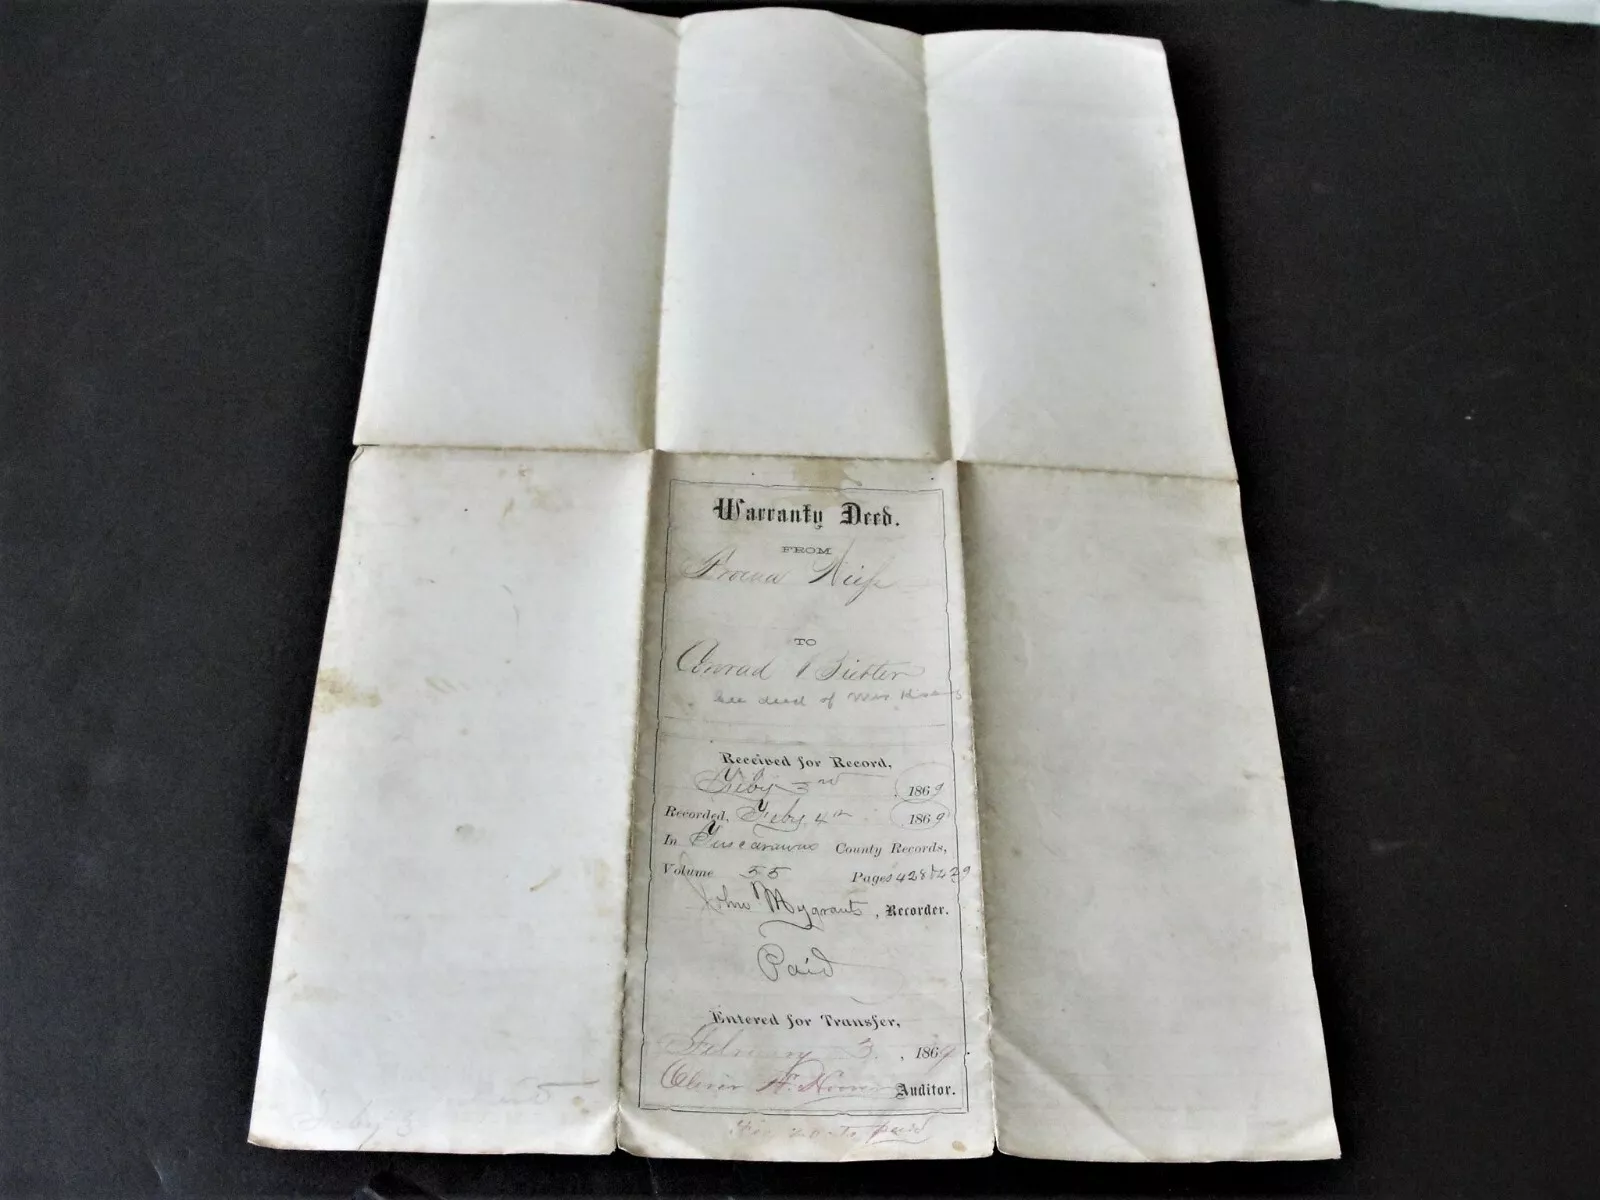 Warranty Deed.
FROM
TO
Conrad
See deed of Wm.
Received for Record,
Feby 3rd 1869
Recorded, Feby 4th 1869
In Tuscarawas County Records,
Volume 55 Pages 428 & 429
John Mygrants, Recorder.
Paid
Entered for Transfer,
February 3. , 1869.
Oliver H. Hoover Auditor.
paid
Feby 3